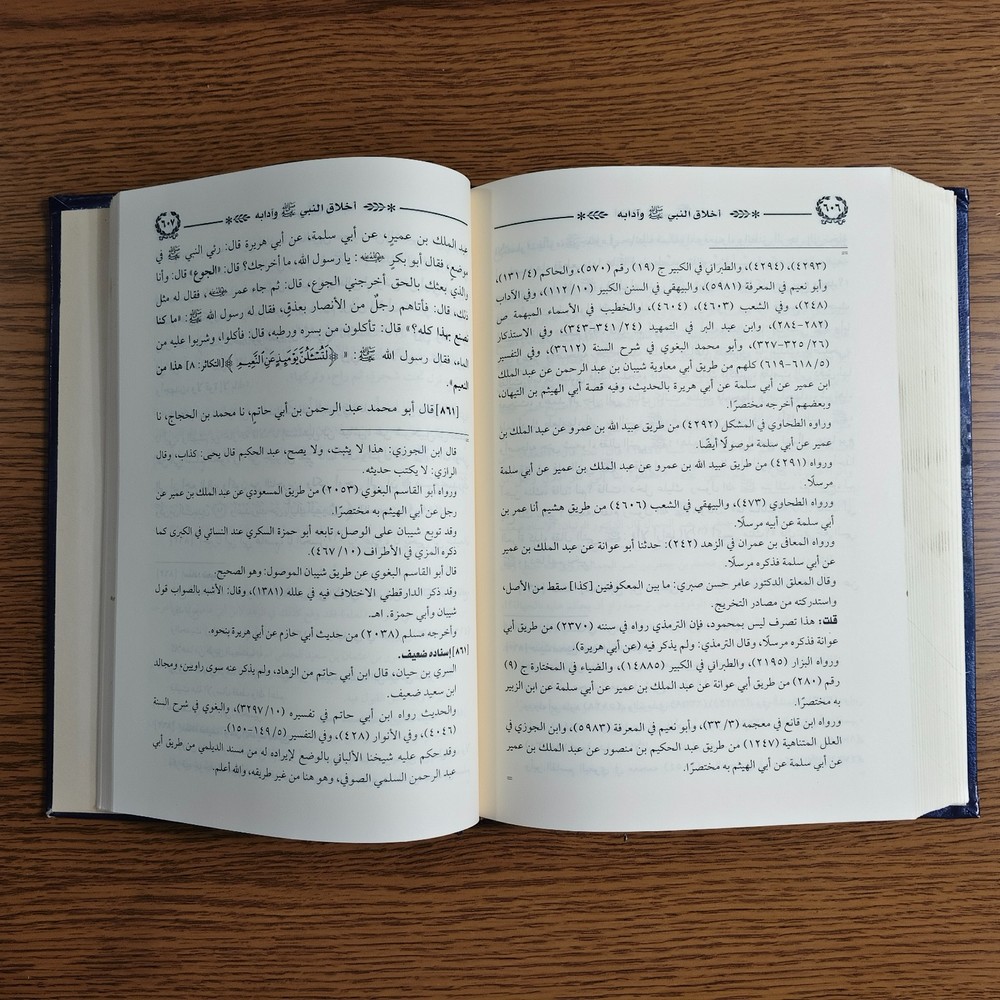 ٦٠٦
أخلاق النبي ﷺ وآدابه
(٤٢٩٣)، (٤٢٩٤)، والطبراني في الكبير ج (١٩) رقم (٥٧٠)، والحاكم (٤/ ١٣١)،
وأبو نعيم في المعرفة (٥٩٨١)، والبيهقي في السنن الكبير (١٠/ ١١٢)، وفي الآداب
(٢٤٨)، وفي الشعب (٤٦٠٣)، (٤٦٠٤)، والخطيب في الأسماء المبهمة ص
(٢٨٢-٢٨٤)، وابن عبد البر في التمهيد (٢٤/ ٣٤١-٣٤٣)، وفي الاستذكار
(٢٦/ ٣٢٥-٣٢٧)، وأبو محمد البغوي في شرح السنة (٣٦١٢)، وفي التفسير
(٥/ ٦١٨-٦١٩) كلهم من طريق أبي معاوية شيبان بن عبد الرحمن عن عبد الملك
ابن عمير عن أبي سلمة عن أبي هريرة بالحديث، وفيه قصة أبي الهيثم بن التيهان،
وبعضهم أخرجه مختصرًا.
وراوه الطحاوي في المشكل (٤٢٩٢) من طريق عبيد الله بن عمرو عن عبد الملك بن
عمير عن أبي سلمة موصولًا أيضًا.
ورواه (٤٢٩١) من طريق عبيد الله بن عمرو عن عبد الملك بن عمير عن أبي سلمة
مرسلًا.
ورواه الطحاوي (٤٧٣)، والبيهقي في الشعب (٤٦٠٦) من طريق هشيم أنا عمر بن
أبي سلمة عن أبيه مرسلًا.
ورواه المعافى بن عمران في الزهد (٢٤٢): حدثنا أبو عوانة عن عبد الملك بن عمير
عن أبي سلمة فذكره مرسلًا.
وقال المعلق الدكتور عامر حسن صبري: ما بين المعكوفتين [كذا] سقط من الأصل،
واستدركته من مصادر التخريج.
قلت: هذا تصرف ليس بمحمود، فإن الترمذي رواه في سننه (٢٣٧٠) من طريق أبي
عوانة فذكره مرسلًا، وقال الترمذي: ولم يذكر فيه (عن أبي هريرة).
ورواه البزار (٢١٩٥)، والطبراني في الكبير (١٤٨٨٥)، والضياء في المختارة ج (٩)
رقم (٢٨٠) من طريق أبي عوانة عن عبد الملك بن عمير عن أبي سلمة عن ابن الزبير
به مختصرًا.
ورواه ابن قانع في معجمه (٣/ ٣٣)، وأبو نعيم في المعرفة (٥٩٨٣)، وابن الجوزي في
العلل المتناهية (١٢٤٧) من طريق عبد الحكيم بن منصور عن عبد الملك بن عمير
عن أبي سلمة عن أبي الهيثم به مختصرًا.
=
أخلاق النبي ﷺ وآدابه
٦٠٧
عبد الملك بن عميرٍ، عن أبي سلمة، عن أبي هريرة قال: رئي النبي ﷺ في
موضع، فقال أبو بكرٍ: يا رسول الله، ما أخرجك؟ قال: «الجوع» قال: وأنا
والذي بعثك بالحق أخرجني الجوع، قال: ثم جاء عمر، فقال له مثل
ذلك، قال: فأتاهم رجلٌ من الأنصار بعذقٍ، فقال له رسول الله ﷺ: «ما كنا
نصنع بهذا كله؟» قال: تأكلون من بسره ورطبه، قال: فأكلوا، وشربوا عليه من
الماء، فقال رسول الله ﷺ: «﴿لَتُسْـَٔلُنَّ يَوْمَئِذٍ عَنِ ٱلنَّعِيمِ﴾ [التكاثر: ٨] هذا من
النعيم».
[٨٦١] قال أبو محمد عبد الرحمن بن أبي حاتمٍ، نا محمد بن الحجاج، نا
=
قال ابن الجوزي: هذا لا يثبت، ولا يصح، عبد الحكيم قال يحيى: كذاب، وقال
الرازي: لا يكتب حديثه.
ورواه أبو القاسم البغوي (٢٠٥٣) من طريق المسعودي عن عبد الملك بن عمير عن
رجل عن أبي الهيثم به مختصرًا.
وقد توبع شيبان على الوصل، تابعه أبو حمزة السكري عند النسائي في الكبرى كما
ذكره المزي في الأطراف (١٠/ ٤٦٧).
قال أبو القاسم البغوي عن طريق شيبان الموصول: وهو الصحيح.
وقد ذكر الدارقطني الاختلاف فيه في علله (١٣٨١)، وقال: الأشبه بالصواب قول
شيبان وأبي حمزة. اهـ
وأخرجه مسلم (٢٠٣٨) من حديث أبي حازم عن أبي هريرة بنحوه.
[٨٦١] إسناده ضعيف.
السري بن حيان، قال ابن أبي حاتم من الزهاد، ولم يذكر عنه سوى راويين، ومجالد
ابن سعيد ضعيف.
والحديث رواه ابن أبي حاتم في تفسيره (١٠/ ٣٢٩٧)، والبغوي في شرح السنة
(٤٠٤٦)، وفي الأنوار (٤٢٨)، وفي التفسير (٥/ ١٤٩-١٥٠).
وقد حكم عليه شيخنا الألباني بالوضع لإيراده له من مسند الديلمي من طريق أبي
عبد الرحمن السلمي الصوفي، وهو هنا من غير طريقه، والله أعلم.